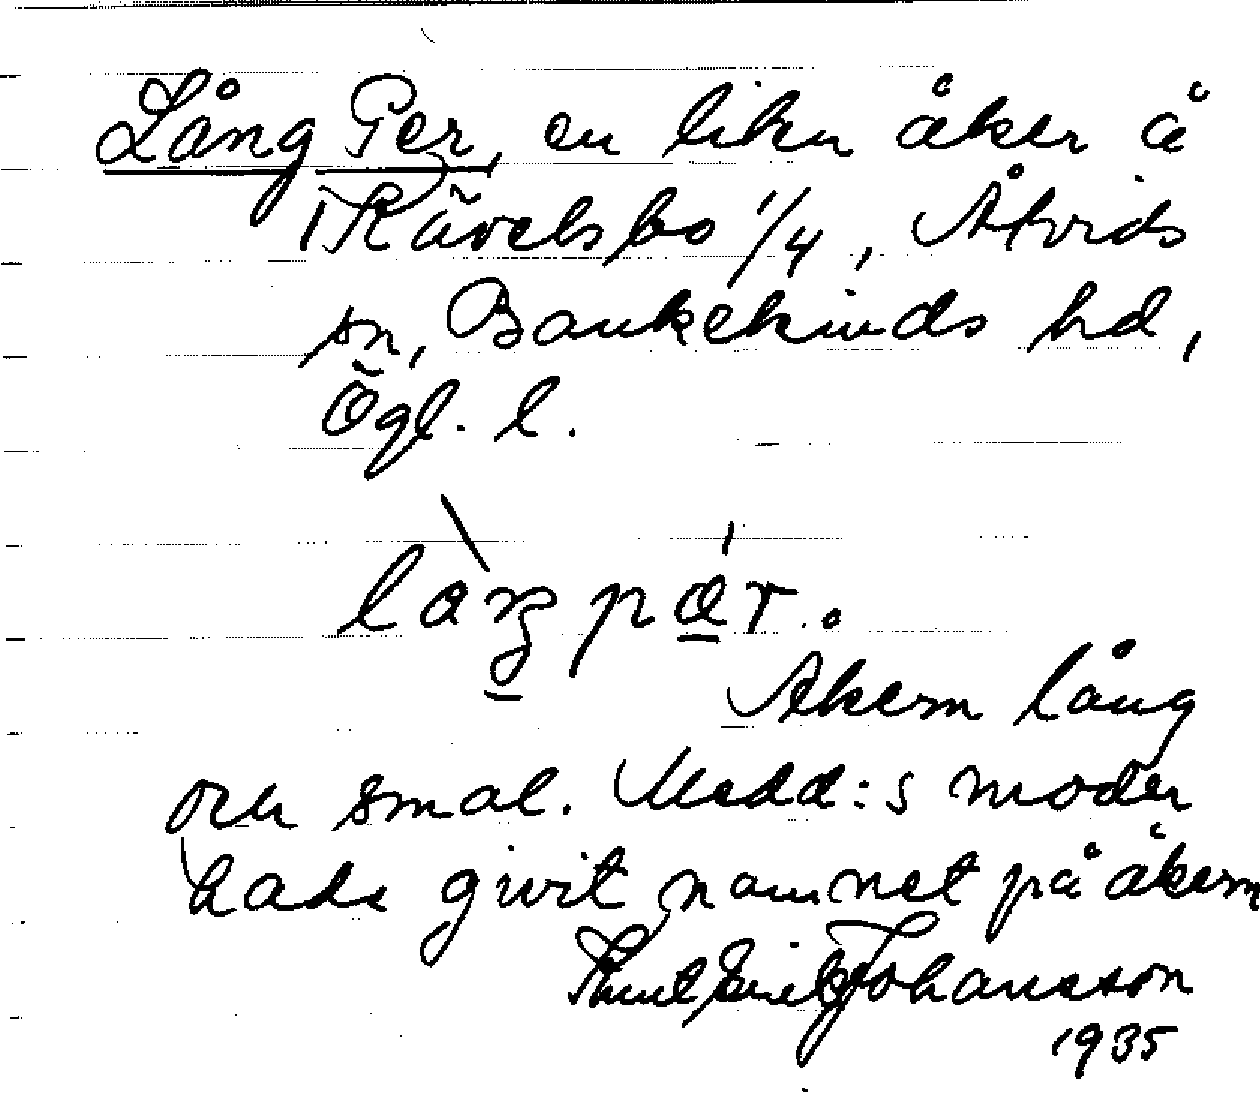 Lång Per, en liten åker å
Kävelsbo 1/4, Åtvids
sn, Bankekinds hd,
Ögl. l.
làŋ pár.
Åkern lång
och smal. Medd:s moder
hade givit namnet på åkern
Knut Erik Johansson
1935